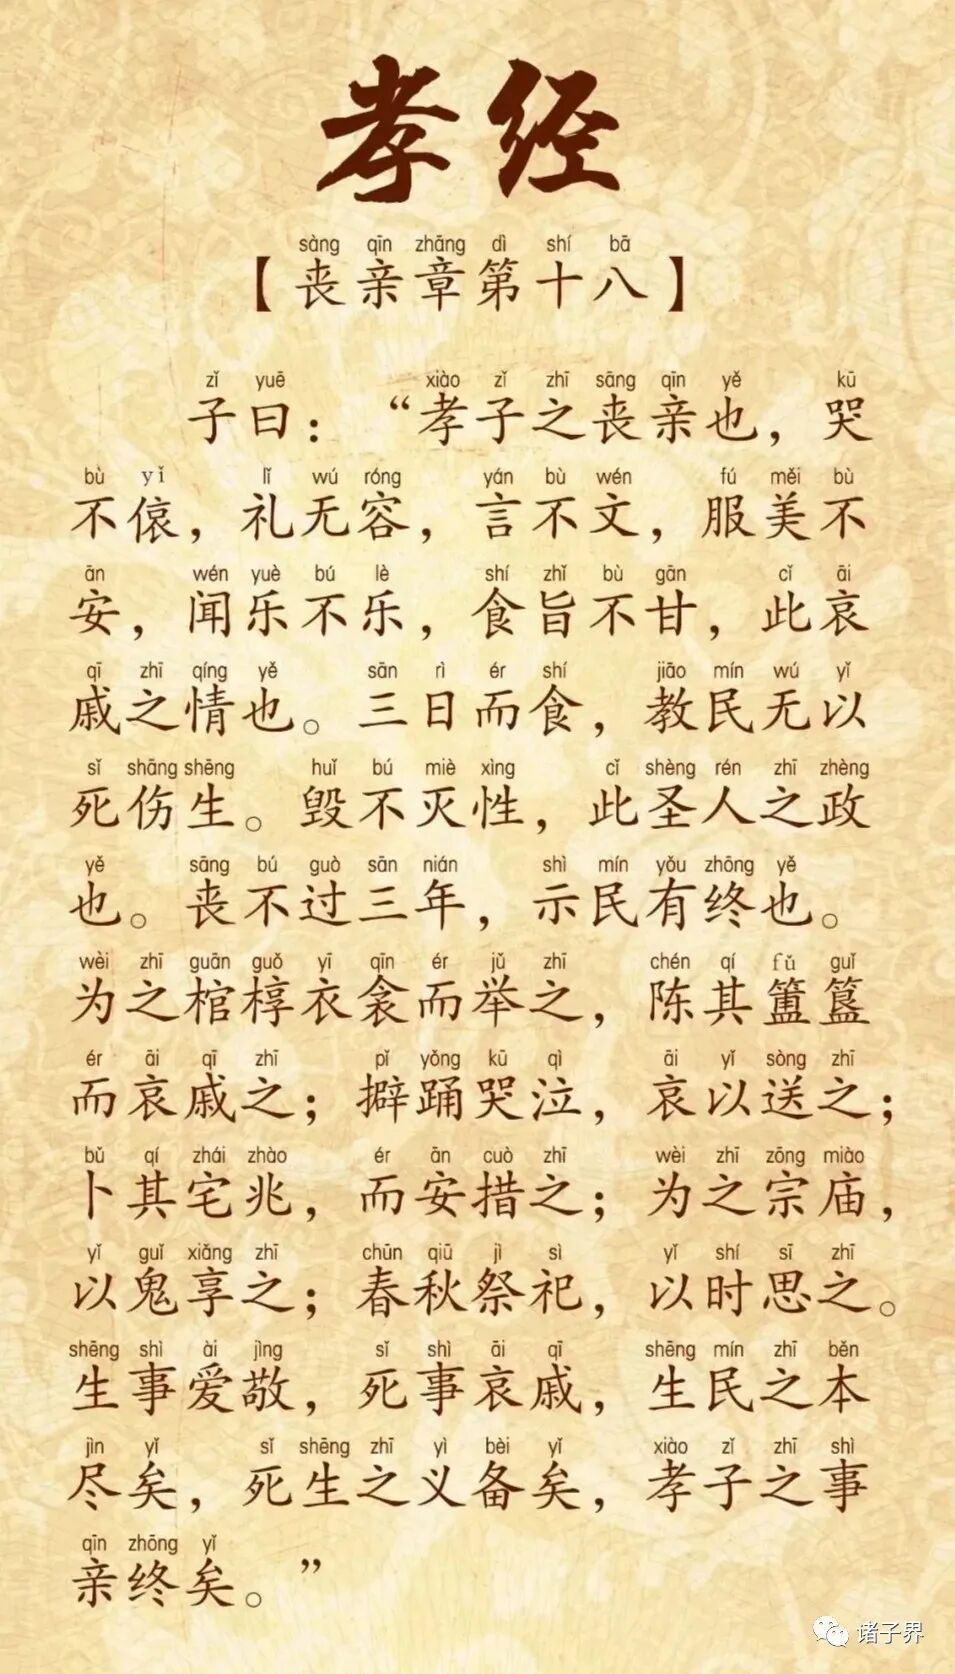 孝经
sàng qīn zhāng dì shí bā
【丧亲章第十八】
zǐ yuē xiào zǐ zhī sāng qīn yě kū
子曰：“孝子之丧亲也，哭
bù yǐ lǐ wú róng yán bù wén fú měi bù
不偯，礼无容，言不文，服美不
ān wén yuè bú lè shí zhǐ bù gān cǐ āi
安，闻乐不乐，食旨不甘，此哀
qī zhī qíng yě sān rì ér shí jiāo mín wú yǐ
戚之情也。三日而食，教民无以
sǐ shāng shēng huǐ bú miè xìng cǐ shèng rén zhī zhèng
死伤生。毁不灭性，此圣人之政
yě sāng bú guò sān nián shì mín yǒu zhōng yě
也。丧不过三年，示民有终也。
wèi zhī guān guǒ yī qīn ér jǔ zhī chén qí fǔ guǐ
为之棺椁衣衾而举之，陈其簠簋
ér āi qī zhī pǐ yǒng kū qì āi yǐ sòng zhī
而哀戚之；擗踊哭泣，哀以送之；
bǔ qí zhái zhào ér ān cuò zhī wèi zhī zōng miào
卜其宅兆，而安措之；为之宗庙，
yǐ guǐ xiǎng zhī chūn qiū jì sì yǐ shí sī zhī
以鬼享之；春秋祭祀，以时思之。
shēng shì ài jìng sǐ shì āi qī shēng mín zhī běn
生事爱敬，死事哀戚，生民之本
jìn yǐ sǐ shēng zhī yì bèi yǐ xiào zǐ zhī shì
尽矣，死生之义备矣，孝子之事
qīn zhōng yǐ
亲终矣。”
诸子界